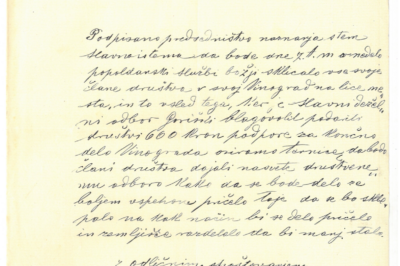 Podpisano predsedništvo naznanja s tem
slavnoistemu da bode dne 7. t. m. v nedelo
popoldanski službi božji sklicalo vse svoje
člane društva v svoj Vinograd na lice me
sta, in to vsled tega, ker, c. slavni dežel
ni odbor Goriški blagovolil podariti
društvi 600 kron podpore za končno
delo Vinograda oziroma da bodo
člani društva dajali nasvete društvene
mu odboru kako da se bode delo se
boljem uspehom pričelo toje da se bo skle
palo na kak način bi se delo pričelo
in zemljišče razdelelo da bi manj stalo.
z odličnim spoštovanjem